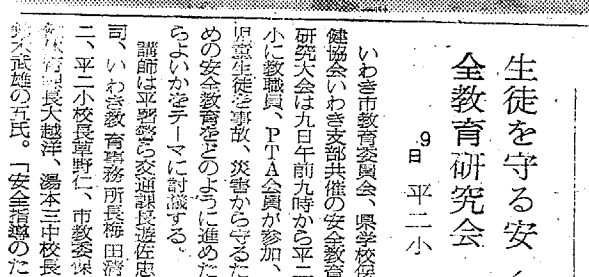 生徒を守る安
全教育研究会
9日 平二小
いわき市教育委員会、県学校保
健協会いわき支部共催の安全教育
研究大会は九日午前九時から平二
小に教職員、PTA会員が参加、
児童生徒を事故、災害から守るた
めの安全教育をどのように進めた
らよいかをテーマに討議する。
講師は平署から交通課長遊佐忠
司、いわき教育事務所長梅田清
二、平二小校長草野仁、市教委保
体育課長大越洋、湯本三中校長
木武雄の五氏。「安全指導のた